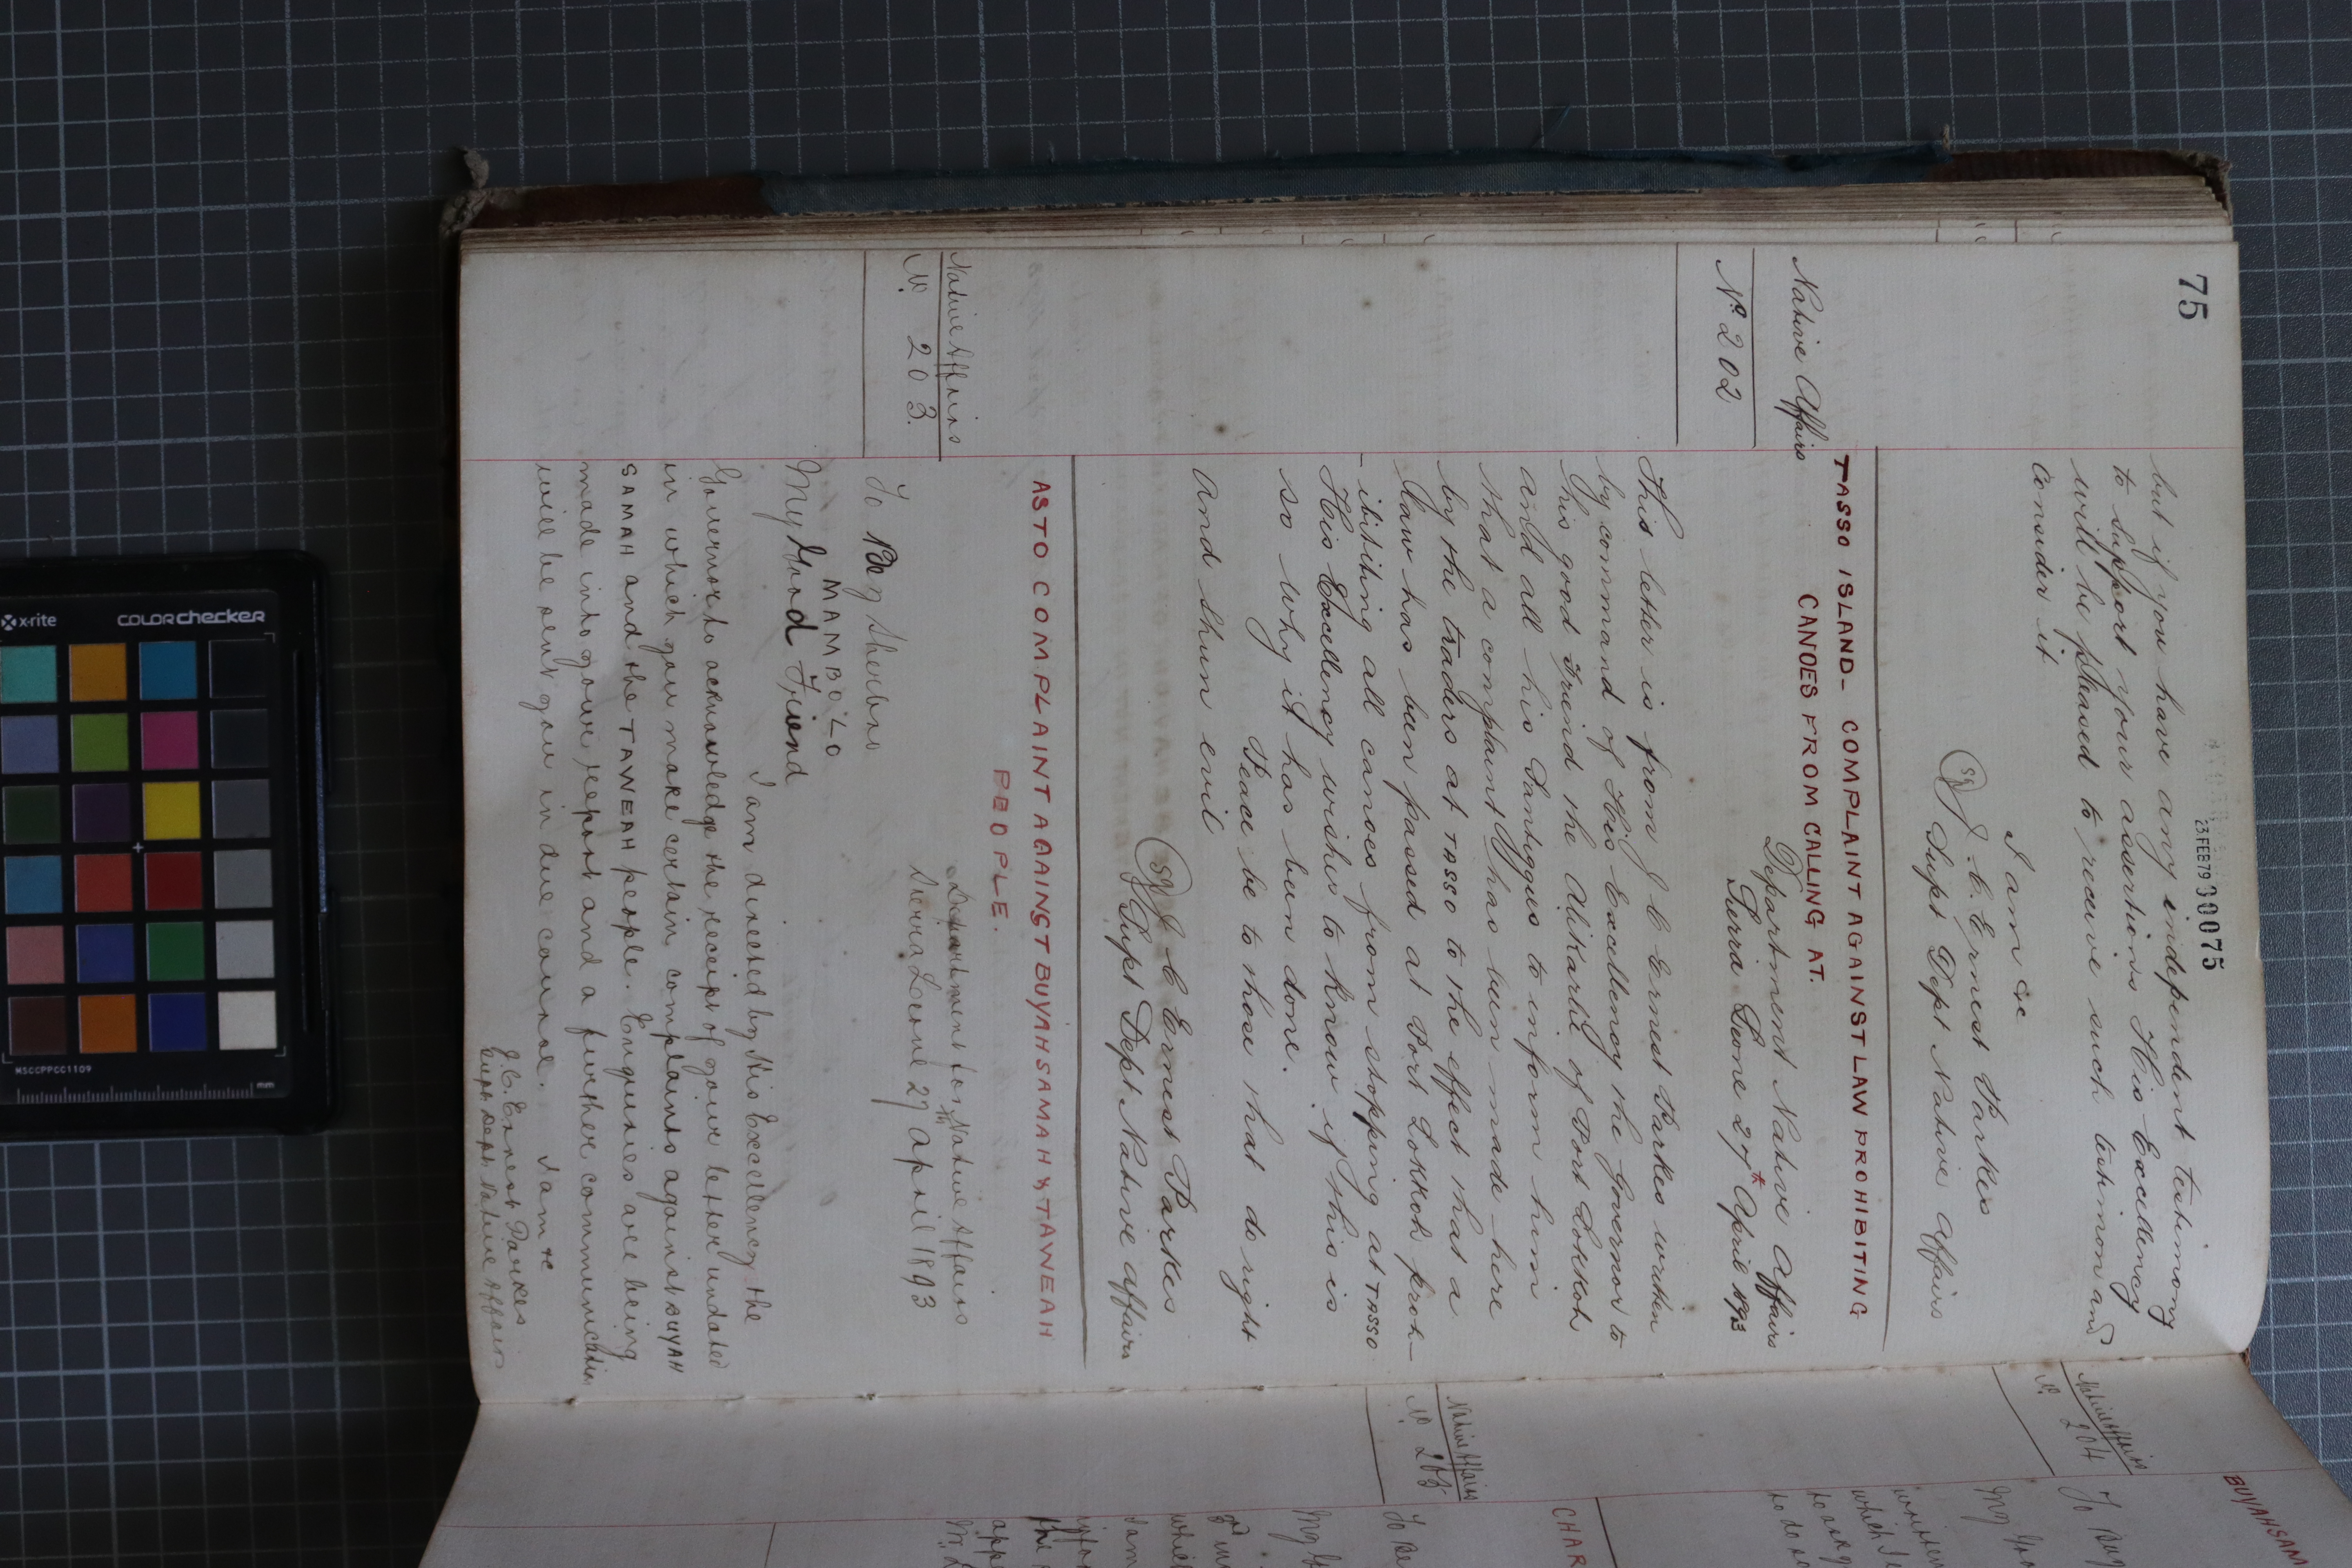 75
23 FEB 79 00075
but if you have any independent testimony
to support your assertions His Excellency
will be pleased to receive such testimony and
consider it
I am &c
(Sg) J. C. Ernest Parkes
Supt Dept Native Affairs
TASSO ISLAND- COMPLAINT AGAINST LAW PROHIBITING
CANOES FROM CALLING AT.
Native Affairs
No 202
Department Native Affairs
Sierra Leone 27th April 1893
This letter is from J C Ernest Parkes written
by command of His Excellency the Governor to
his good friend the Alikarlie of Port Lokkoh
and all his Santiggus to inform him
that a complaint has been made here
by the traders at TASSO to the effect that a
law has been passed at Port Lokkoh proh-
-ibiting all canoes from stopping at TASSO
His Excellency wishes to know if this is
so why it has been done.
Peace be to those that do right
and shun evil
(Sg) J C Ernest Parkes
Supt Dept Native Affairs
AS TO COMPLAINT AGAINST BUYAH SAMAH & TAWEAH
PEOPLE.
Native Affairs
No. 203.
Department for Native Affairs
Sierra Leone 27th April 1893
To Bey Sherbro
MAMBOLO
My Good Friend
I am directed by His Excellency the
Governor to acknowledge the receipt of your letter undated
in which you make certain complaints against BUYAH
SAMAH and the TAWEAH people. Enquiries are being
made into your report and a further communication
will be sent you in due course. I am &c
J. C. Ernest Parkes
Supt Dept Native Affairs
Native Affairs
No. 204
BUYAH SAM
To
My
which
to do
Native Affairs
No. 205
CHAR
To Be
My
the
app